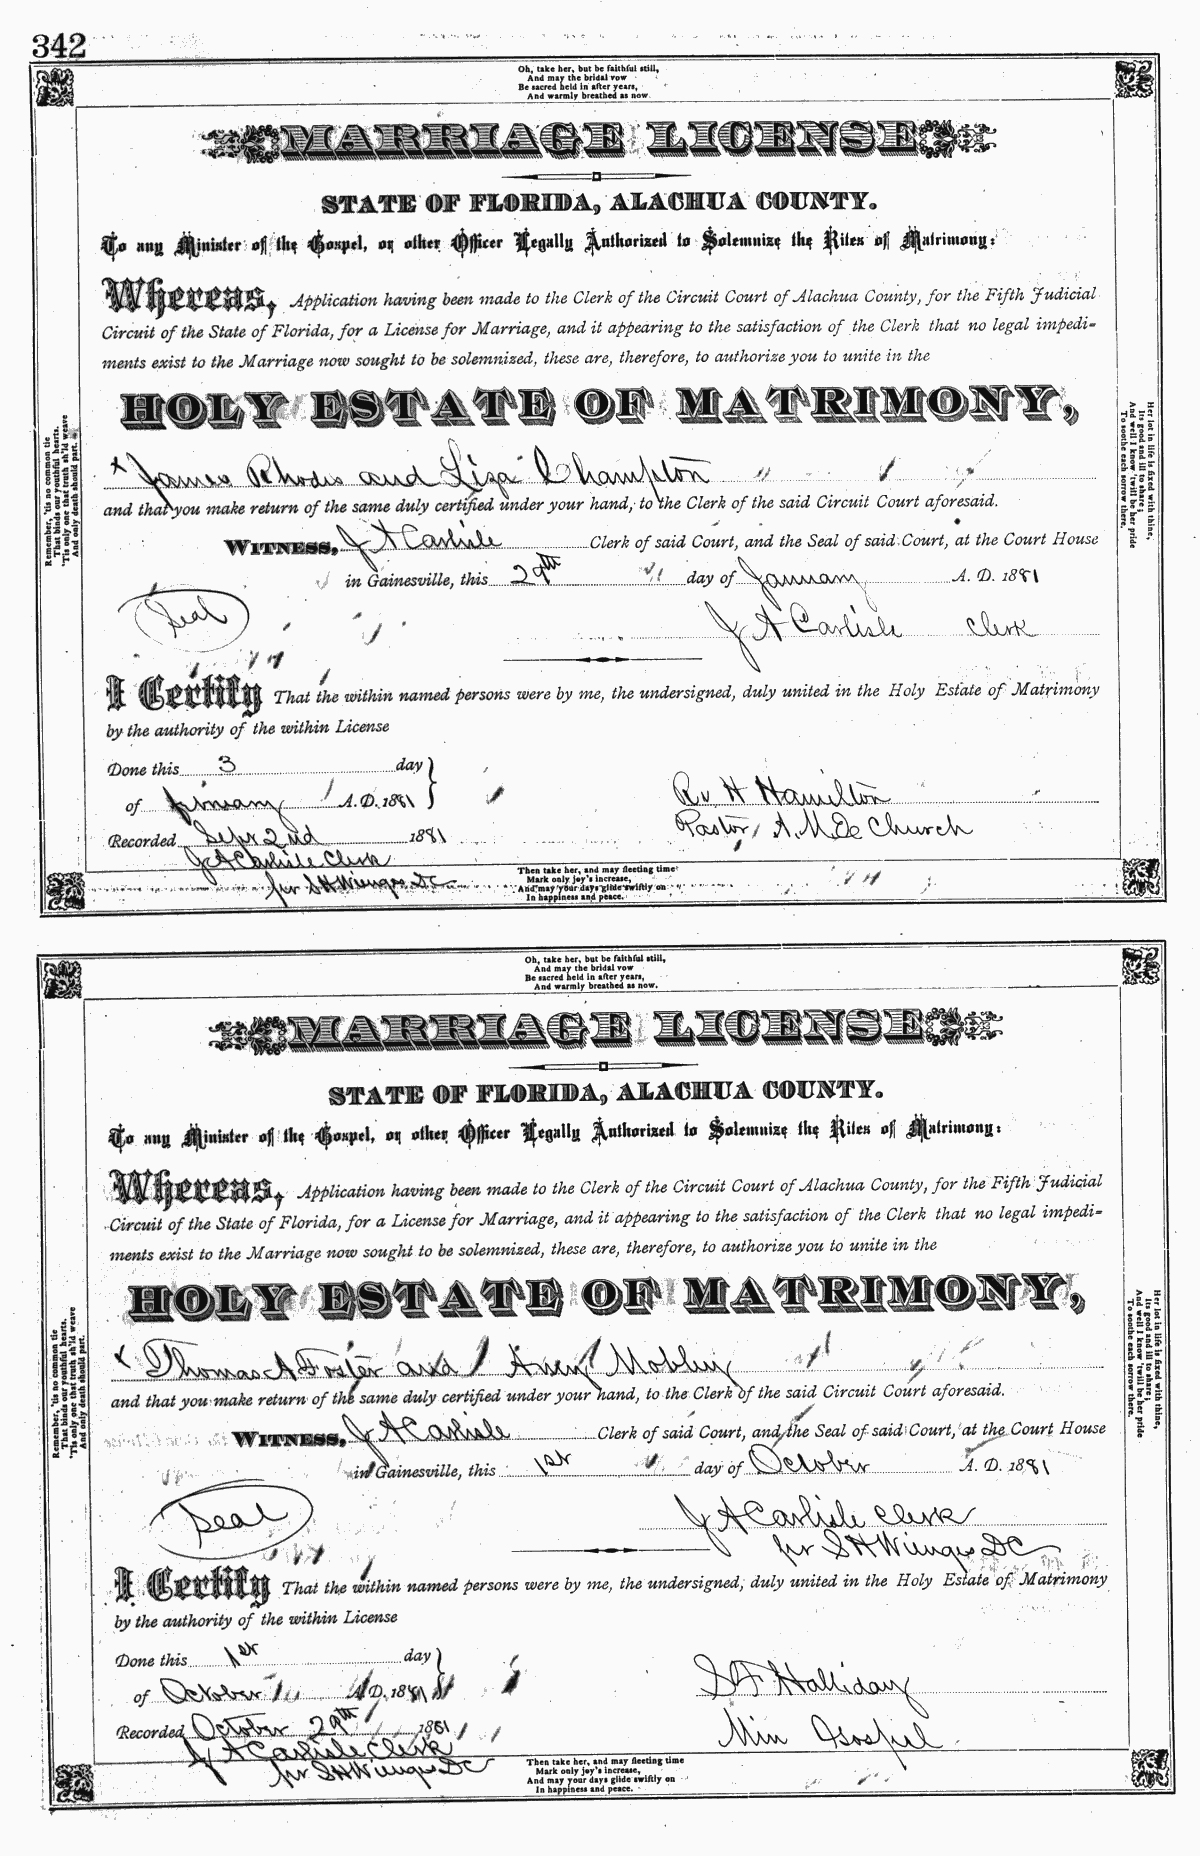 342
Oh, take her, but be faithful still,
And may the bridal vow
Be sacred held in after years,
And warmly breathed as now.
MARRIAGE LICENSE
STATE OF FLORIDA, ALACHUA COUNTY.
To any Minister of the Gospel, or other Officer Legally Authorized to Solemnize the Rites of Matrimony:
Whereas, Application having been made to the Clerk of the Circuit Court of Alachua County, for the Fifth Judicial
Circuit of the State of Florida, for a License for Marriage, and it appearing to the satisfaction of the Clerk that no legal impedi-
ments exist to the Marriage now sought to be solemnized, these are, therefore, to authorize you to unite in the
HOLY ESTATE OF MATRIMONY,
x James Rhodes and Liza Champton
and that you make return of the same duly certified under your hand, to the Clerk of the said Circuit Court aforesaid.
WITNESS, J A Carlisle Clerk of said Court, and the Seal of said Court, at the Court House
in Gainesville, this 29th day of January A. D. 1881
Seal
J A Carlisle Clerk
I Certify That the within named persons were by me, the undersigned, duly united in the Holy Estate of Matrimony
by the authority of the within License
Done this 3 day
of A. D. 1881
Rv H Hamilton
Pastor A. M. E. Church
Recorded Sept 2nd 1881
J A Carlisle Clerk
per S H Wienges DC
Remember, 'tis no common tie
That binds our youthful hearts,
'Tis only one that truth sh'ld weave
And only death should part.
Her lot in life is fixed with thine,
Its good and ill to share;
And well I know 'twill be her pride
To soothe each sorrow there.
Then take her, and may fleeting time
Mark only joy's increase,
And may your days glide swiftly on
In happiness and peace.
Oh, take her, but be faithful still,
And may the bridal vow
Be sacred held in after years,
And warmly breathed as now.
MARRIAGE LICENSE
STATE OF FLORIDA, ALACHUA COUNTY.
To any Minister of the Gospel, or other Officer Legally Authorized to Solemnize the Rites of Matrimony:
Whereas, Application having been made to the Clerk of the Circuit Court of Alachua County, for the Fifth Judicial
Circuit of the State of Florida, for a License for Marriage, and it appearing to the satisfaction of the Clerk that no legal impedi-
ments exist to the Marriage now sought to be solemnized, these are, therefore, to authorize you to unite in the
HOLY ESTATE OF MATRIMONY,
x Thomas A Foster and Amy Mobley
and that you make return of the same duly certified under your hand, to the Clerk of the said Circuit Court aforesaid.
WITNESS, J A Carlisle Clerk of said Court, and the Seal of said Court, at the Court House
in Gainesville, this 1st day of October A. D. 1881
Seal
J A Carlisle Clerk
per S H Wienges DC
I Certify That the within named persons were by me, the undersigned, duly united in the Holy Estate of Matrimony
by the authority of the within License
Done this 1st day
of October A. D. 1881
S F Halliday
Min Gospel
Recorded October 29th 1881
J A Carlisle Clerk
per S H Wienges DC
Remember, 'tis no common tie
That binds our youthful hearts,
'Tis only one that truth sh'ld weave
And only death should part.
Her lot in life is fixed with thine,
Its good and ill to share;
And well I know 'twill be her pride
To soothe each sorrow there.
Then take her, and may fleeting time
Mark only joy's increase,
And may your days glide swiftly on
In happiness and peace.